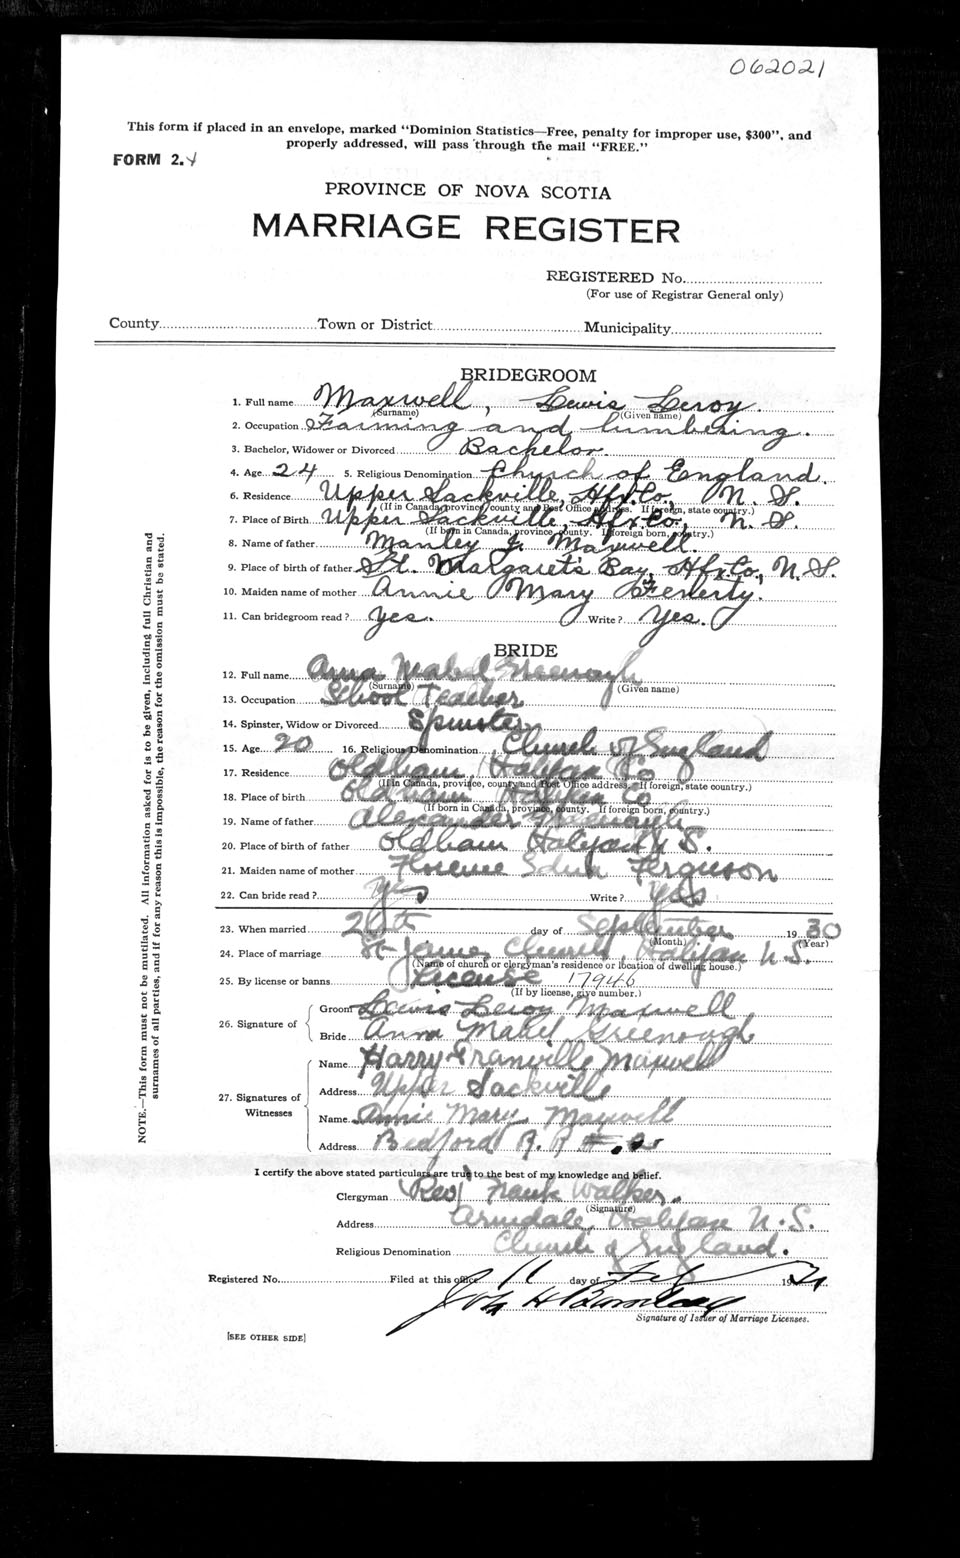 062021
This form if placed in an envelope, marked "Dominion Statistics—Free, penalty for improper use, $300", and
properly addressed, will pass through the mail "FREE."
FORM 2.
PROVINCE OF NOVA SCOTIA
MARRIAGE REGISTER
REGISTERED No.
(For use of Registrar General only)
County Town or District Municipality
BRIDEGROOM
1. Full name Maxwell, Lewis Leroy.
(Surname) (Given name)
2. Occupation Farming and lumbering.
3. Bachelor, Widower or Divorced Bachelor.
4. Age 24 5. Religious Denomination Church of England.
6. Residence Upper Sackville, Hfx. Co., N. S.
(If in Canada, province, county and Post Office address. If foreign, state country.)
7. Place of Birth Upper Sackville, Hfx. Co., N. S.
(If born in Canada, province, county. If foreign born, country.)
8. Name of father Manley J. Maxwell.
9. Place of birth of father St. Margaret's Bay, Hfx Co., N. S.
10. Maiden name of mother Annie Mary Fenerty.
11. Can bridegroom read? Yes. Write? Yes.
BRIDE
12. Full name Anna Mabel Greenough
(Surname) (Given name)
13. Occupation School Teacher
14. Spinster, Widow or Divorced Spinster
15. Age 20 16. Religious Denomination Church of England
17. Residence Oldham, Halifax Co
(If in Canada, province, county and Post Office address. If foreign, state country.)
18. Place of birth Oldham Halifax Co
(If born in Canada, province, county. If foreign born, country.)
19. Name of father Alexander Greenough
20. Place of birth of father Oldham Halifax N S.
21. Maiden name of mother Florence Edna Ferguson
22. Can bride read? Yes Write? Yes
23. When married day of September 1930
(Month) (Year)
24. Place of marriage St James Church, Halifax N. S.
(Name of church or clergyman's residence or location of dwelling house.)
25. By license or banns License 17946
(If by license, give number.)
26. Signature of
Groom Lewis Leroy Maxwell
Bride Anna Mabel Greenough
27. Signatures of Witnesses
Name Harry Granville Maxwell
Address Upper Sackville
Name Annie Mary Maxwell
Address Bedford R. R #
I certify the above stated particulars are true to the best of my knowledge and belief.
Clergyman Rev Frank Walker.
(Signature)
Address Armdale, Halifax N. S.
Religious Denomination Church of England.
Registered No. Filed at this office 11 day of 19
Signature of Issuer of Marriage Licenses.
[SEE OTHER SIDE]
NOTE.—This form must not be mutilated. All information asked for is to be given, including full Christian and
surnames of all parties, and if for any reason this is impossible, the reason for the omission must be stated.